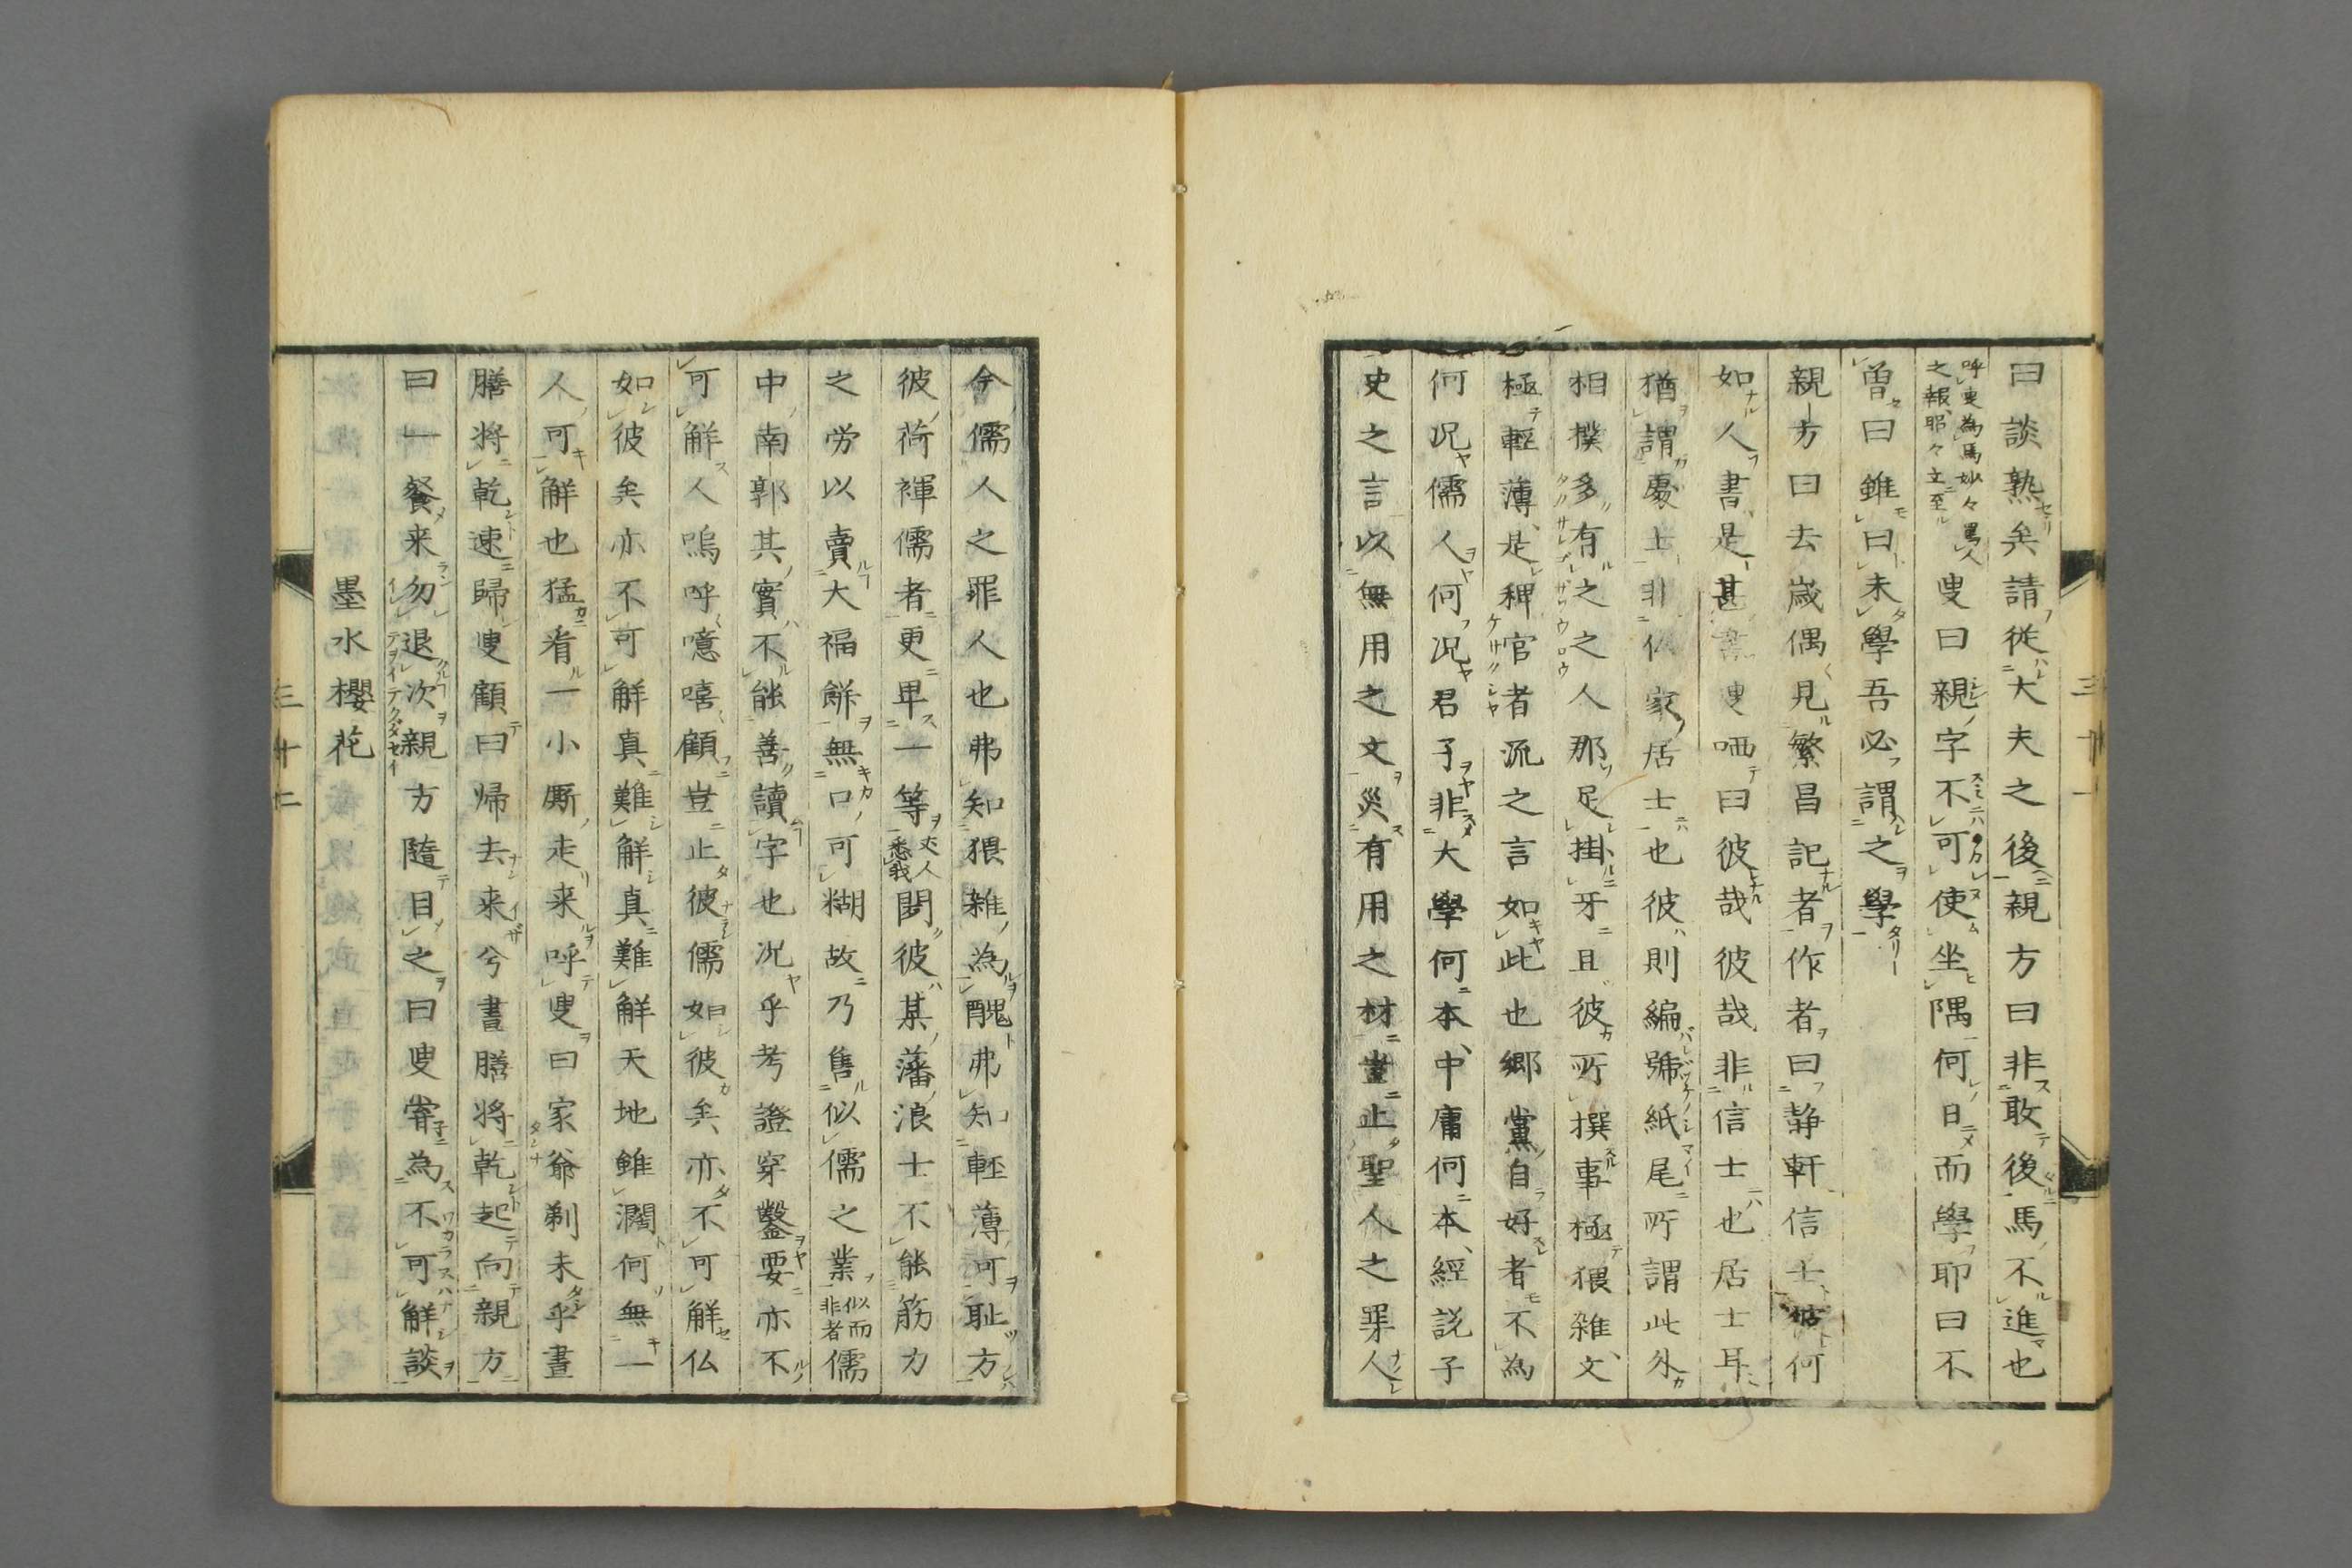 曰談熟矣請従大夫之後親方曰非敢後馬不進也
呼叟為馬妙々罵人
之報昭々立至
叟曰親字不可使坐隅何日而學耶曰不
曽曰雖曰未學吾必謂之學
親方曰去歳偶見繁昌記者作者曰静軒信士何
如人書是甚叟哂曰彼哉彼哉非信士也居士耳
猶謂處士非仏家居士也彼則編號紙尾所謂此外
相撲多有之之人那足掛牙且彼所撰事極猥雑文
極輕薄是稗官者流之言如此也郷黨自好者不為
何况儒人何况君子非大學何本中庸何本經説子
史之言以無用之文災有用之材豈止聖人之罪人
今儒人之罪人也弗知猥雑為醜弗知輕薄可耻方
彼荷褌儒者更卑一等
夾人
悉我
閲彼某藩浪士不能筋力
之労以賣大福餅無口可糊故乃售似儒之業
似而
非者
儒
中南郭其實不能善讀字也况乎考證穿鑿要亦不
可解人嗚呼噫嘻顧豈止彼儒如彼矣亦不可解仏
如彼矣亦不可解真難解真難解天地雖濶何無一
人可解也猛看一小厮走来呼叟曰家爺剃未乎晝
膳将乾速歸叟顧曰帰去来兮晝膳将乾起向親方
曰一餐来勿退次親方隨目之曰叟甯為不可解談
墨水櫻花
三十一
三十二